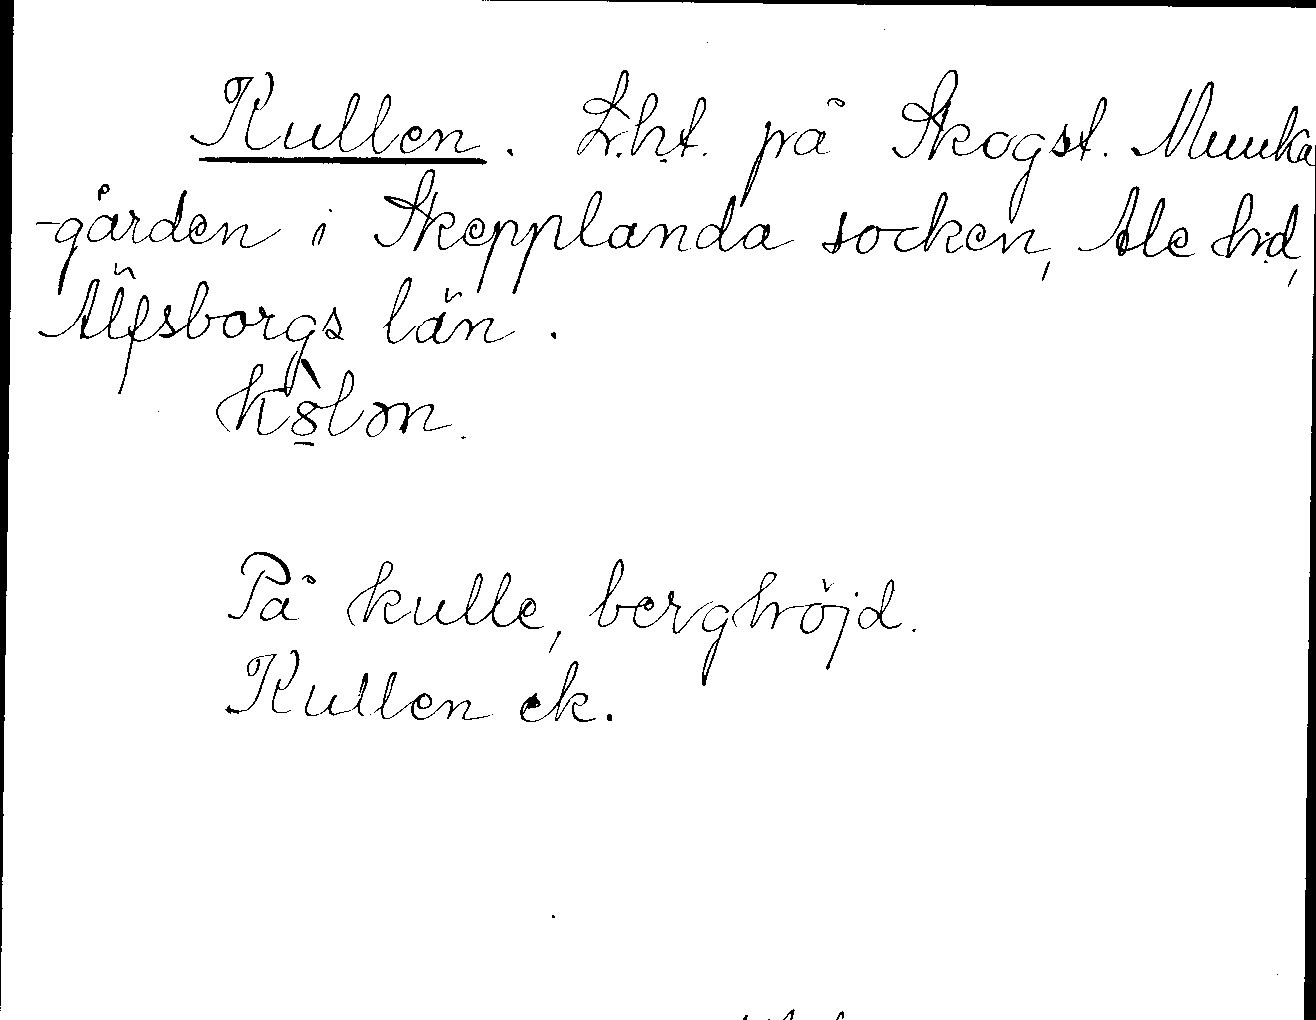 Kullen. Lht. på Skogst. Munka
-gården i Skepplanda socken, Ale hd,
Älfsborgs län.
På kulle, berghöjd.
Kullen ek.